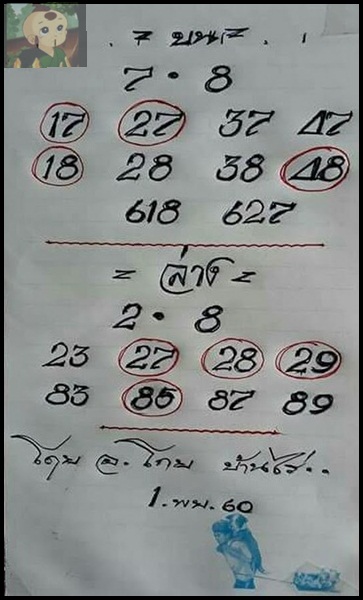 = บน =
7 • 8
17 27 37 47
18 28 38 48
618 627
= ล่าง =
2 • 8
23 27 28 29
83 85 87 89
โดย อ. โกย บ้านไร่..
1. พย. 60